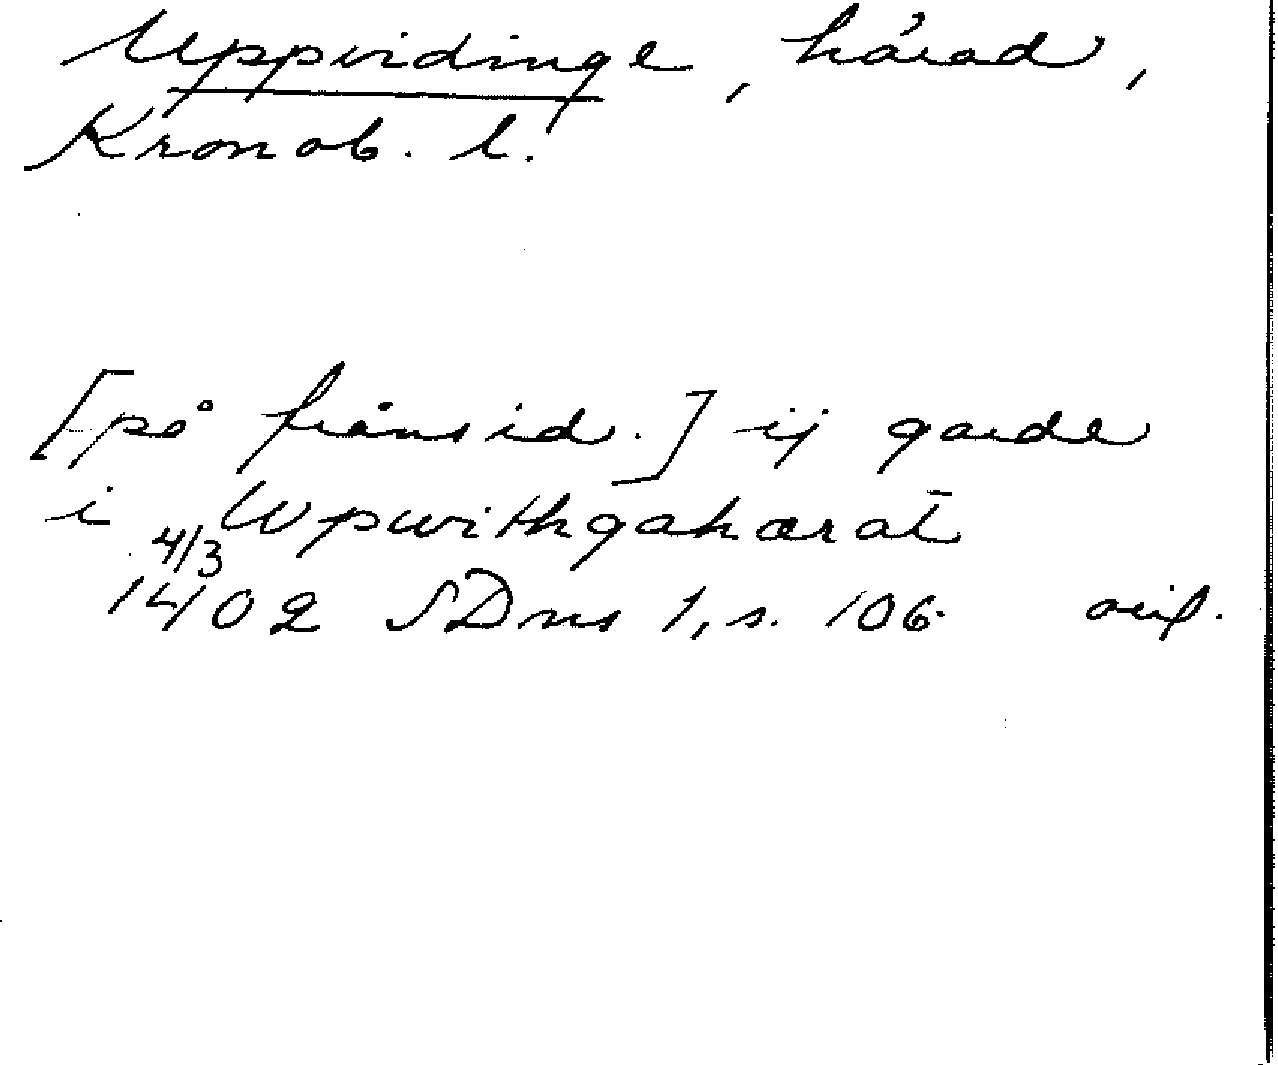 Uppvidinge, härad,
Kronob. l.
[på frånsid.] ij garde
i Wpwithgahærat
4/3
1402 SDns 1, s. 106. avs.